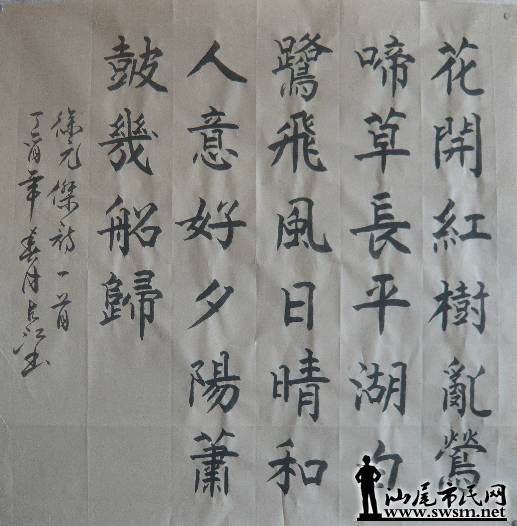 花開紅樹亂鶯
啼草長平湖白
鷺飛風日晴和
人意好夕陽蕭
皷幾船歸
徐元傑詩一首
丁酉年春月
汕尾市民网
www.swsm.net